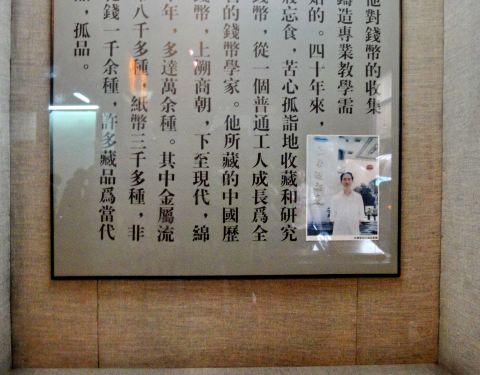 他對錢幣的收集
鑄造專業教學需
始的。四十年來，
忘食，苦心孤詣地收藏和研究
錢幣，從一個普通工人成長爲全
的錢幣學家。他所藏的中國歷
錢幣，上溯商朝，下至現代，綿
年，多達萬余種。其中金屬流
八千多種，紙幣三千多種，非
錢一千余種，許多藏品爲當代
品，孤品。